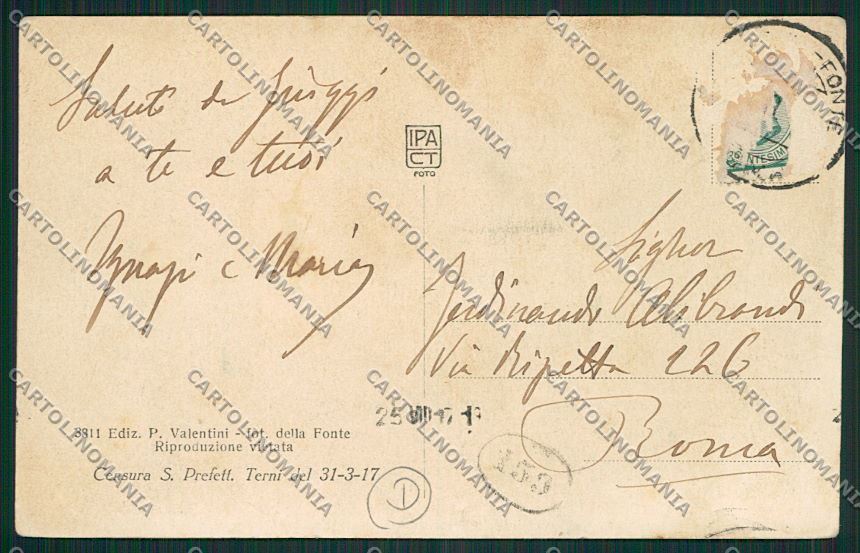 Saluti da Fiuggi
a te e tuoi
Ignazi e Maria
3811 Ediz. P. Valentini - fot. della Fonte
Riproduzione vietata
Censura S. Prefett. Terni del 31-3-17
IPA
CT
FOTO
-FONTE
CENTESIMI
Signor
Ferdinando Alibrandi
Via Ripetta 226
Roma
25 VIII 17
CARTOLINOMANIA